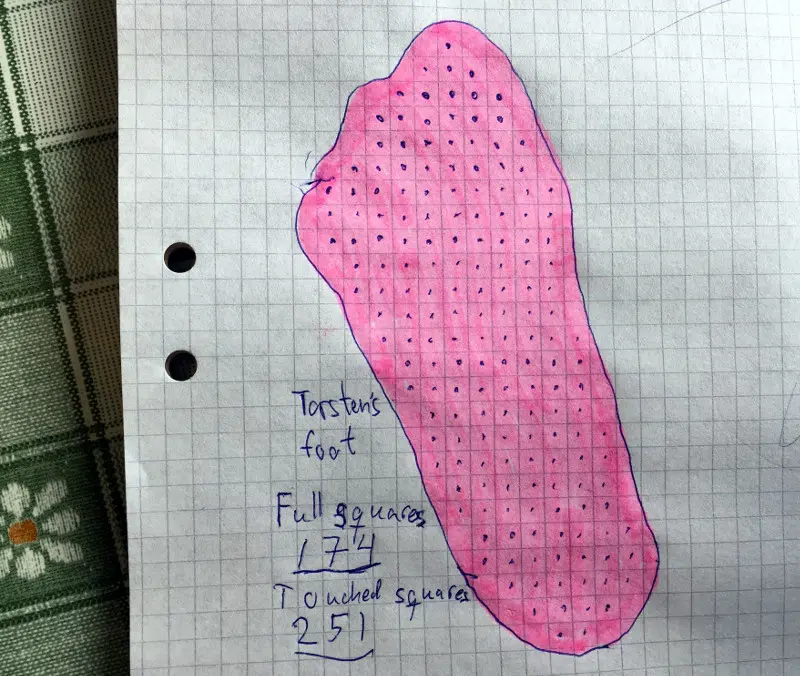 Torsten's
foot
Full squares
174
Touched squares
251